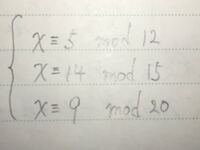 x ≡ 5 mod 12
x ≡ 14 mod 15
x ≡ 9 mod 20